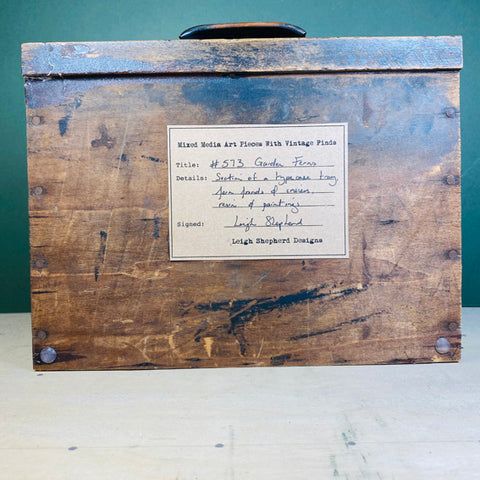 Mixed Media Art Pieces With Vintage Finds
Title: #573 Garden Ferns
Details: Section of a typecase tray,
fern fronds &
resin & paintings
Signed: Leigh Shepherd
Leigh Shepherd Designs